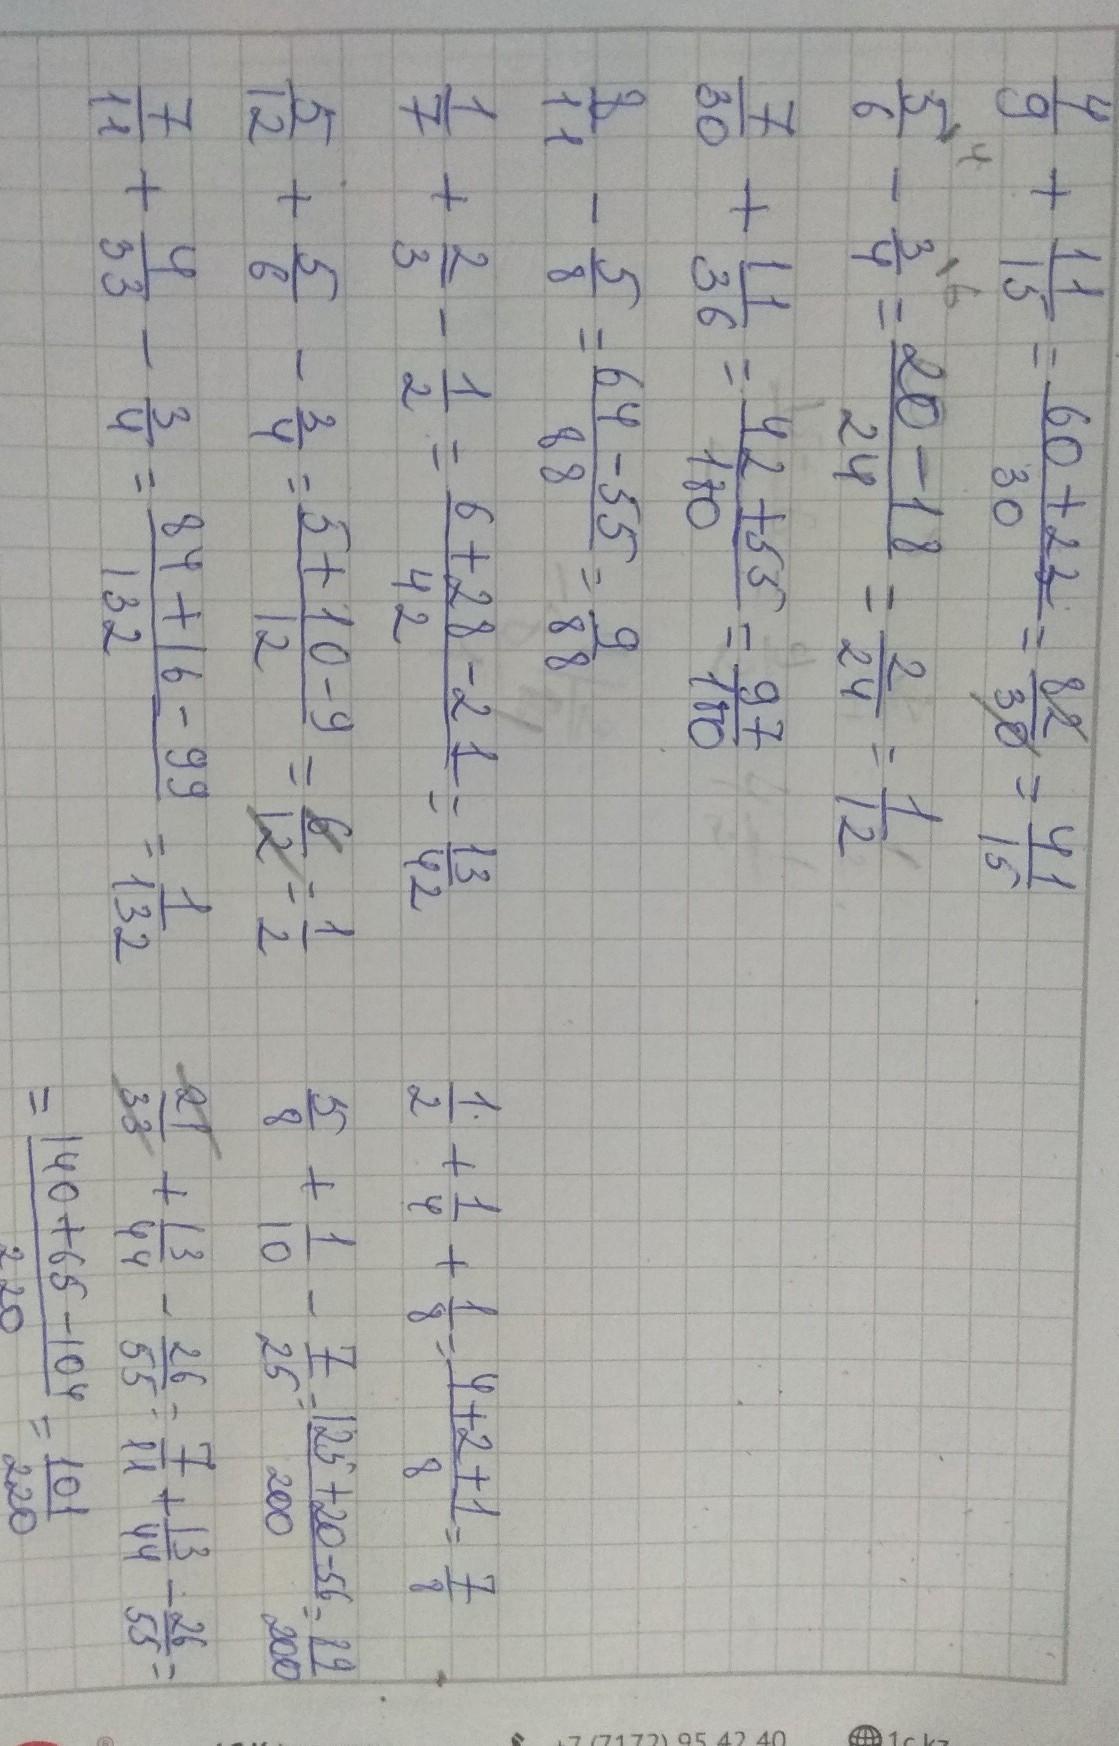 4/9 + 11/15 = (60+22)/30 = 82/30 = 41/15
5/6 ·4 - 3/4 ·6 = (20-18)/24 = 2/24 = 1/12
7/30 + 11/36 = (42+55)/180 = 97/180
8/11 - 5/8 = (64-55)/88 = 9/88
1/7 + 2/3 - 1/2 = (6+28-21)/42 = 13/42
5/12 + 5/6 - 3/4 = (5+10-9)/12 = 6/12 = 1/2
7/11 + 4/33 - 3/4 = (84+16-99)/132 = 1/132
1/2 + 1/4 + 1/8 = (4+2+1)/8 = 7/8
5/8 + 1/10 - 7/25 = (125+20-56)/200 = 19/200
21/33 + 13/44 - 26/55 = 7/11 + 13/44 - 26/55 =
= (140+65-104)/220 = 101/220
+7(7172) 95 42 40 1c.kz